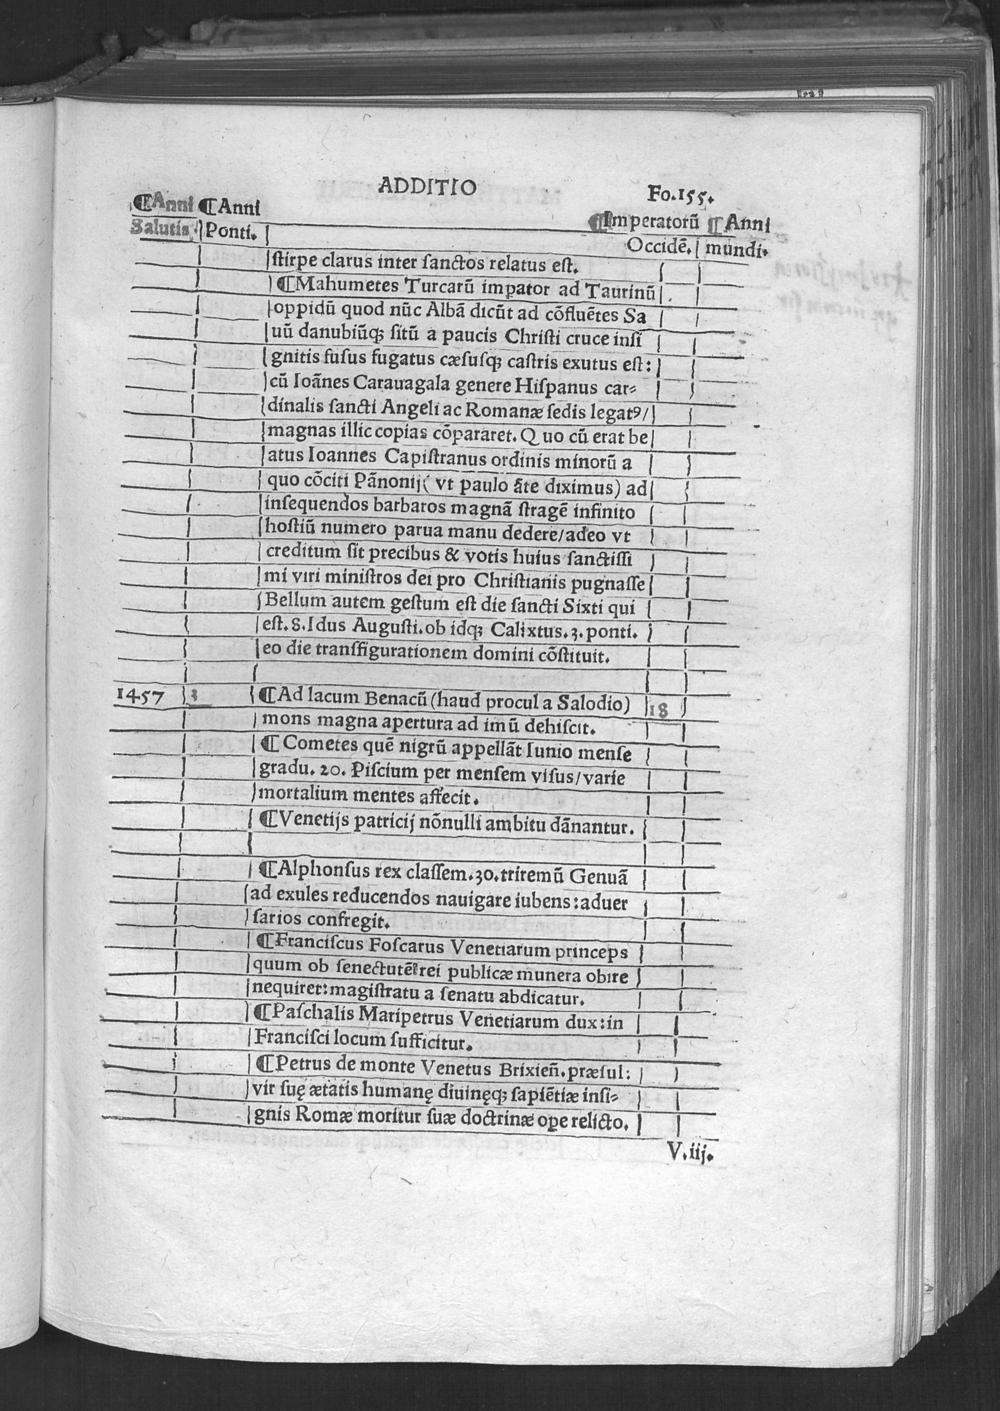 ADDITIO Fo.155.
¶Anni ¶Anni ¶Imperatorũ ¶Anni
Salutis Ponti. Occidẽ. mundi.
stirpe clarus inter sanctos relatus est.
¶Mahumetes Turcarũ impator ad Taurinũ
oppidũ quod nũc Albã dicũt ad cõfluẽtes Sa
uũ danubiũq; sitũ a paucis Christi cruce insi
gnitis fusus fugatus cæsusq; castris exutus est:
cũ Ioãnes Carauagala genere Hispanus car-
dinalis sancti Angeli ac Romanæ sedis legatꝰ/
magnas illic copias cõpararet. Quo cũ erat be
atus Ioannes Capistranus ordinis minorũ a
quo cõciti Pãnonij( vt paulo ãte diximus) ad
insequendos barbaros magnã stragẽ infinito
hostiũ numero parua manu dedere/adeo vt
creditum sit precibus & votis huius sanctissi
mi viri ministros dei pro Christianis pugnasse
Bellum autem gestum est die sancti Sixti qui
est.8.Idus Augusti.ob idq; Calixtus.3.ponti.
eo die transfigurationem domini cõstituit.
1457 3 ¶Ad lacum Benacũ (haud procul a Salodio) 18
mons magna apertura ad imũ dehiscit.
¶Cometes quẽ nigrũ appellãt Iunio mense
gradu. 20. Piscium per mensem visus/varie
mortalium mentes affecit.
¶Venetijs patricij nõnulli ambitu dãnantur.
¶Alphonsus rex classem.30.triremũ Genuã
ad exules reducendos nauigare iubens:aduer
sarios confregit.
¶Franciscus Foscarus Venetiarum princeps
quum ob senectutẽ rei publicæ munera obire
nequiret:magistratu a senatu abdicatur.
¶Paschalis Maripetrus Venetiarum dux:in
Francisci locum sufficitur.
¶Petrus de monte Venetus Brixieñ.præsul:
vir suę ætatis humanę diuinęq; sapiẽtiæ insi-
gnis Romæ moritur suæ doctrinæ ope relicto.
V.iij.